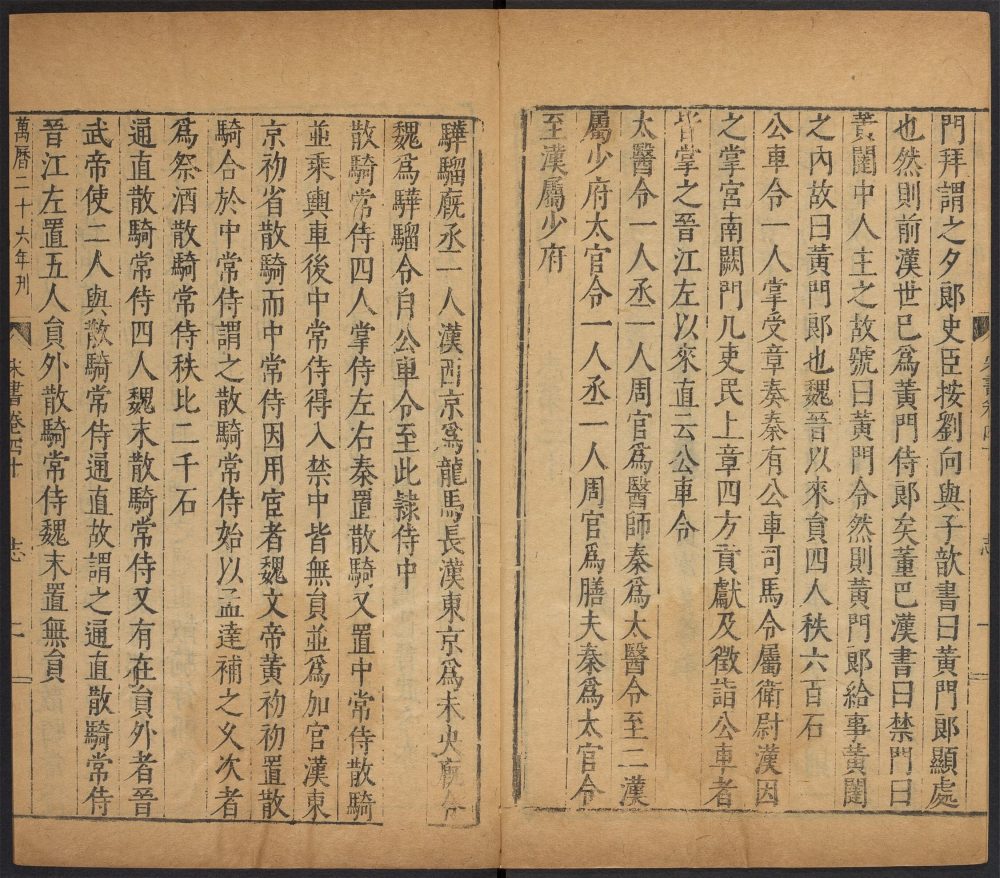 門拜謂之夕郎史臣按劉向與子歆書曰黃門郎顯處
也然則前漢世已爲黃門侍郎矣董巴漢書曰禁門曰
黃闥中人主之故號曰黃門令然則黃門郎給事黃闥
之內故曰黃門郎也魏晉以來員四人秩六百石
公車令一人掌受章奏秦有公車司馬令屬衛尉漢因
之掌宮南闕門凡吏民上章四方貢獻及徵詣公車者
皆掌之晉江左以來直云公車令
太醫令一人丞一人周官爲醫師秦爲太醫令至二漢
屬少府太官令一人丞一人周官爲膳夫秦爲太官令
至漢屬少府
驊騮廐丞一人漢西京爲龍馬長漢東京爲未央廐令
魏爲驊騮令自公車令至此隸侍中
散騎常侍四人掌侍左右秦置散騎又置中常侍散騎
並乘輿車後中常侍得入禁中皆無員並爲加官漢東
京初省散騎而中常侍因用宦者魏文帝黃初初置散
騎合於中常侍謂之散騎常侍始以孟達補之久次者
爲祭酒散騎常侍秩比二千石
通直散騎常侍四人魏末散騎常侍又有在員外者晉
武帝使二人與散騎常侍通直故謂之通直散騎常侍
晉江左置五人員外散騎常侍魏末置無員
萬曆二十六年刊
宋書卷四十
志
二